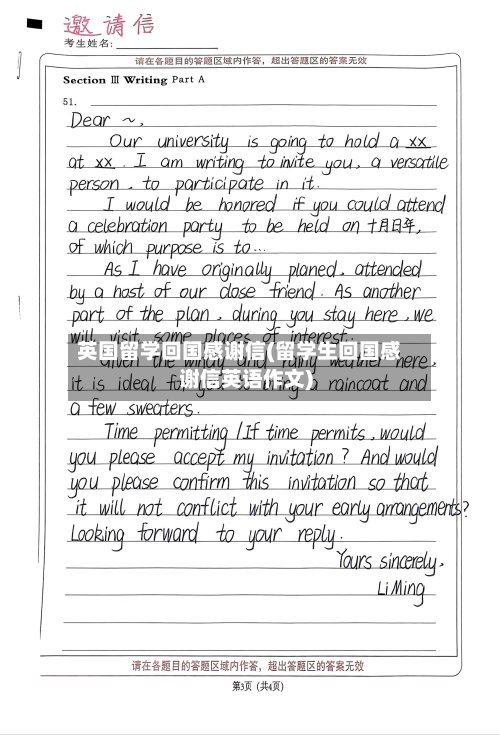 邀请信
考生姓名:
请在各题目的答题区域内作答，超出答题区的答案无效
Section Ⅲ Writing Part A
51.
Dear ~,
Our university is going to hold a xx
at xx. I am writing to invite you, a versatile
person, to participate in it.
I would be honored if you could attend
a celebration party to be held on 十月日年,
of which purpose is to...
As I have originally planed, attended
by a host of our close friend. As another
part of the plan, during you stay here, we
will visit some places of interest.
英国留学回国感谢信(留学生回国感
谢信英语作文)
Given the windy and rainy weather here,
it is ideal for you to bring a raincoat and
a few sweaters.
Time permitting / If time permits, would
you please accept my invitation? And would
you please confirm this invitation so that
it will not conflict with your early arrangements?
Looking forward to your reply.
Yours sincerely,
Li Ming
请在各题目的答题区域内作答，超出答题区的答案无效
第3页 (共4页)